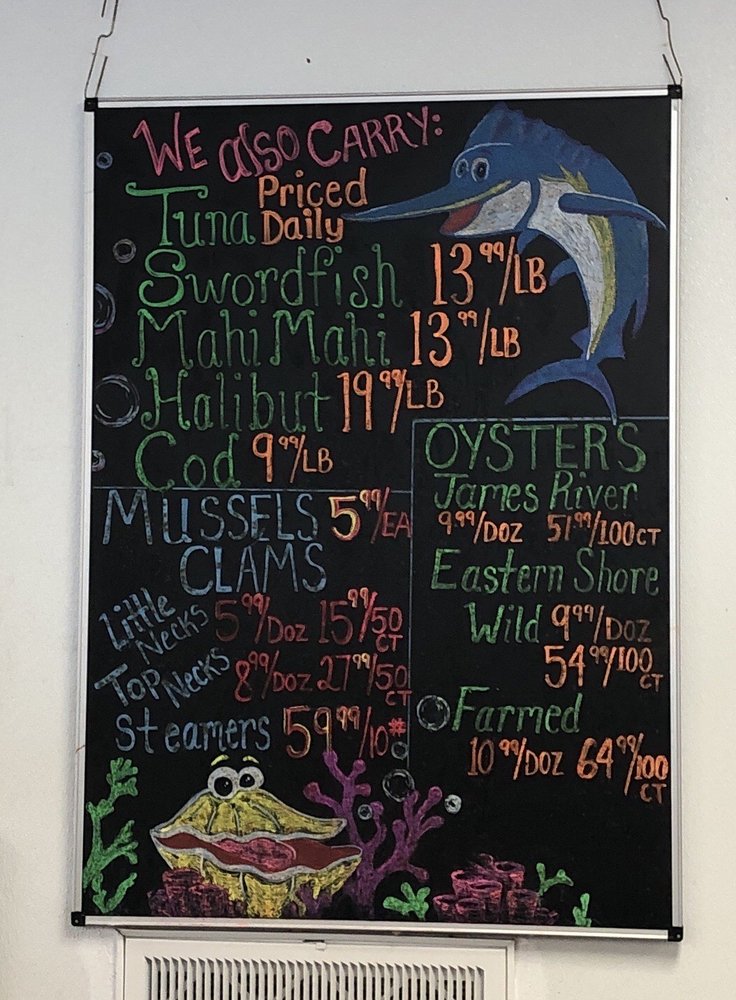 We also Carry:
Tuna Priced Daily
Swordfish 13.99/LB
Mahi Mahi 13.99/LB
Halibut 19.99/LB
Cod 9.99/LB
Mussels 5.99/EA
Clams
Little Necks 5.99/Doz 15.99/50 CT
Top Necks 8.99/Doz 27.99/50 CT
Steamers 59.99/10#
OYSTERS
James River
9.99/Doz 51.99/100CT
Eastern Shore
Wild 9.99/Doz
54.99/100 CT
Farmed
10.99/Doz 64.99/100 CT